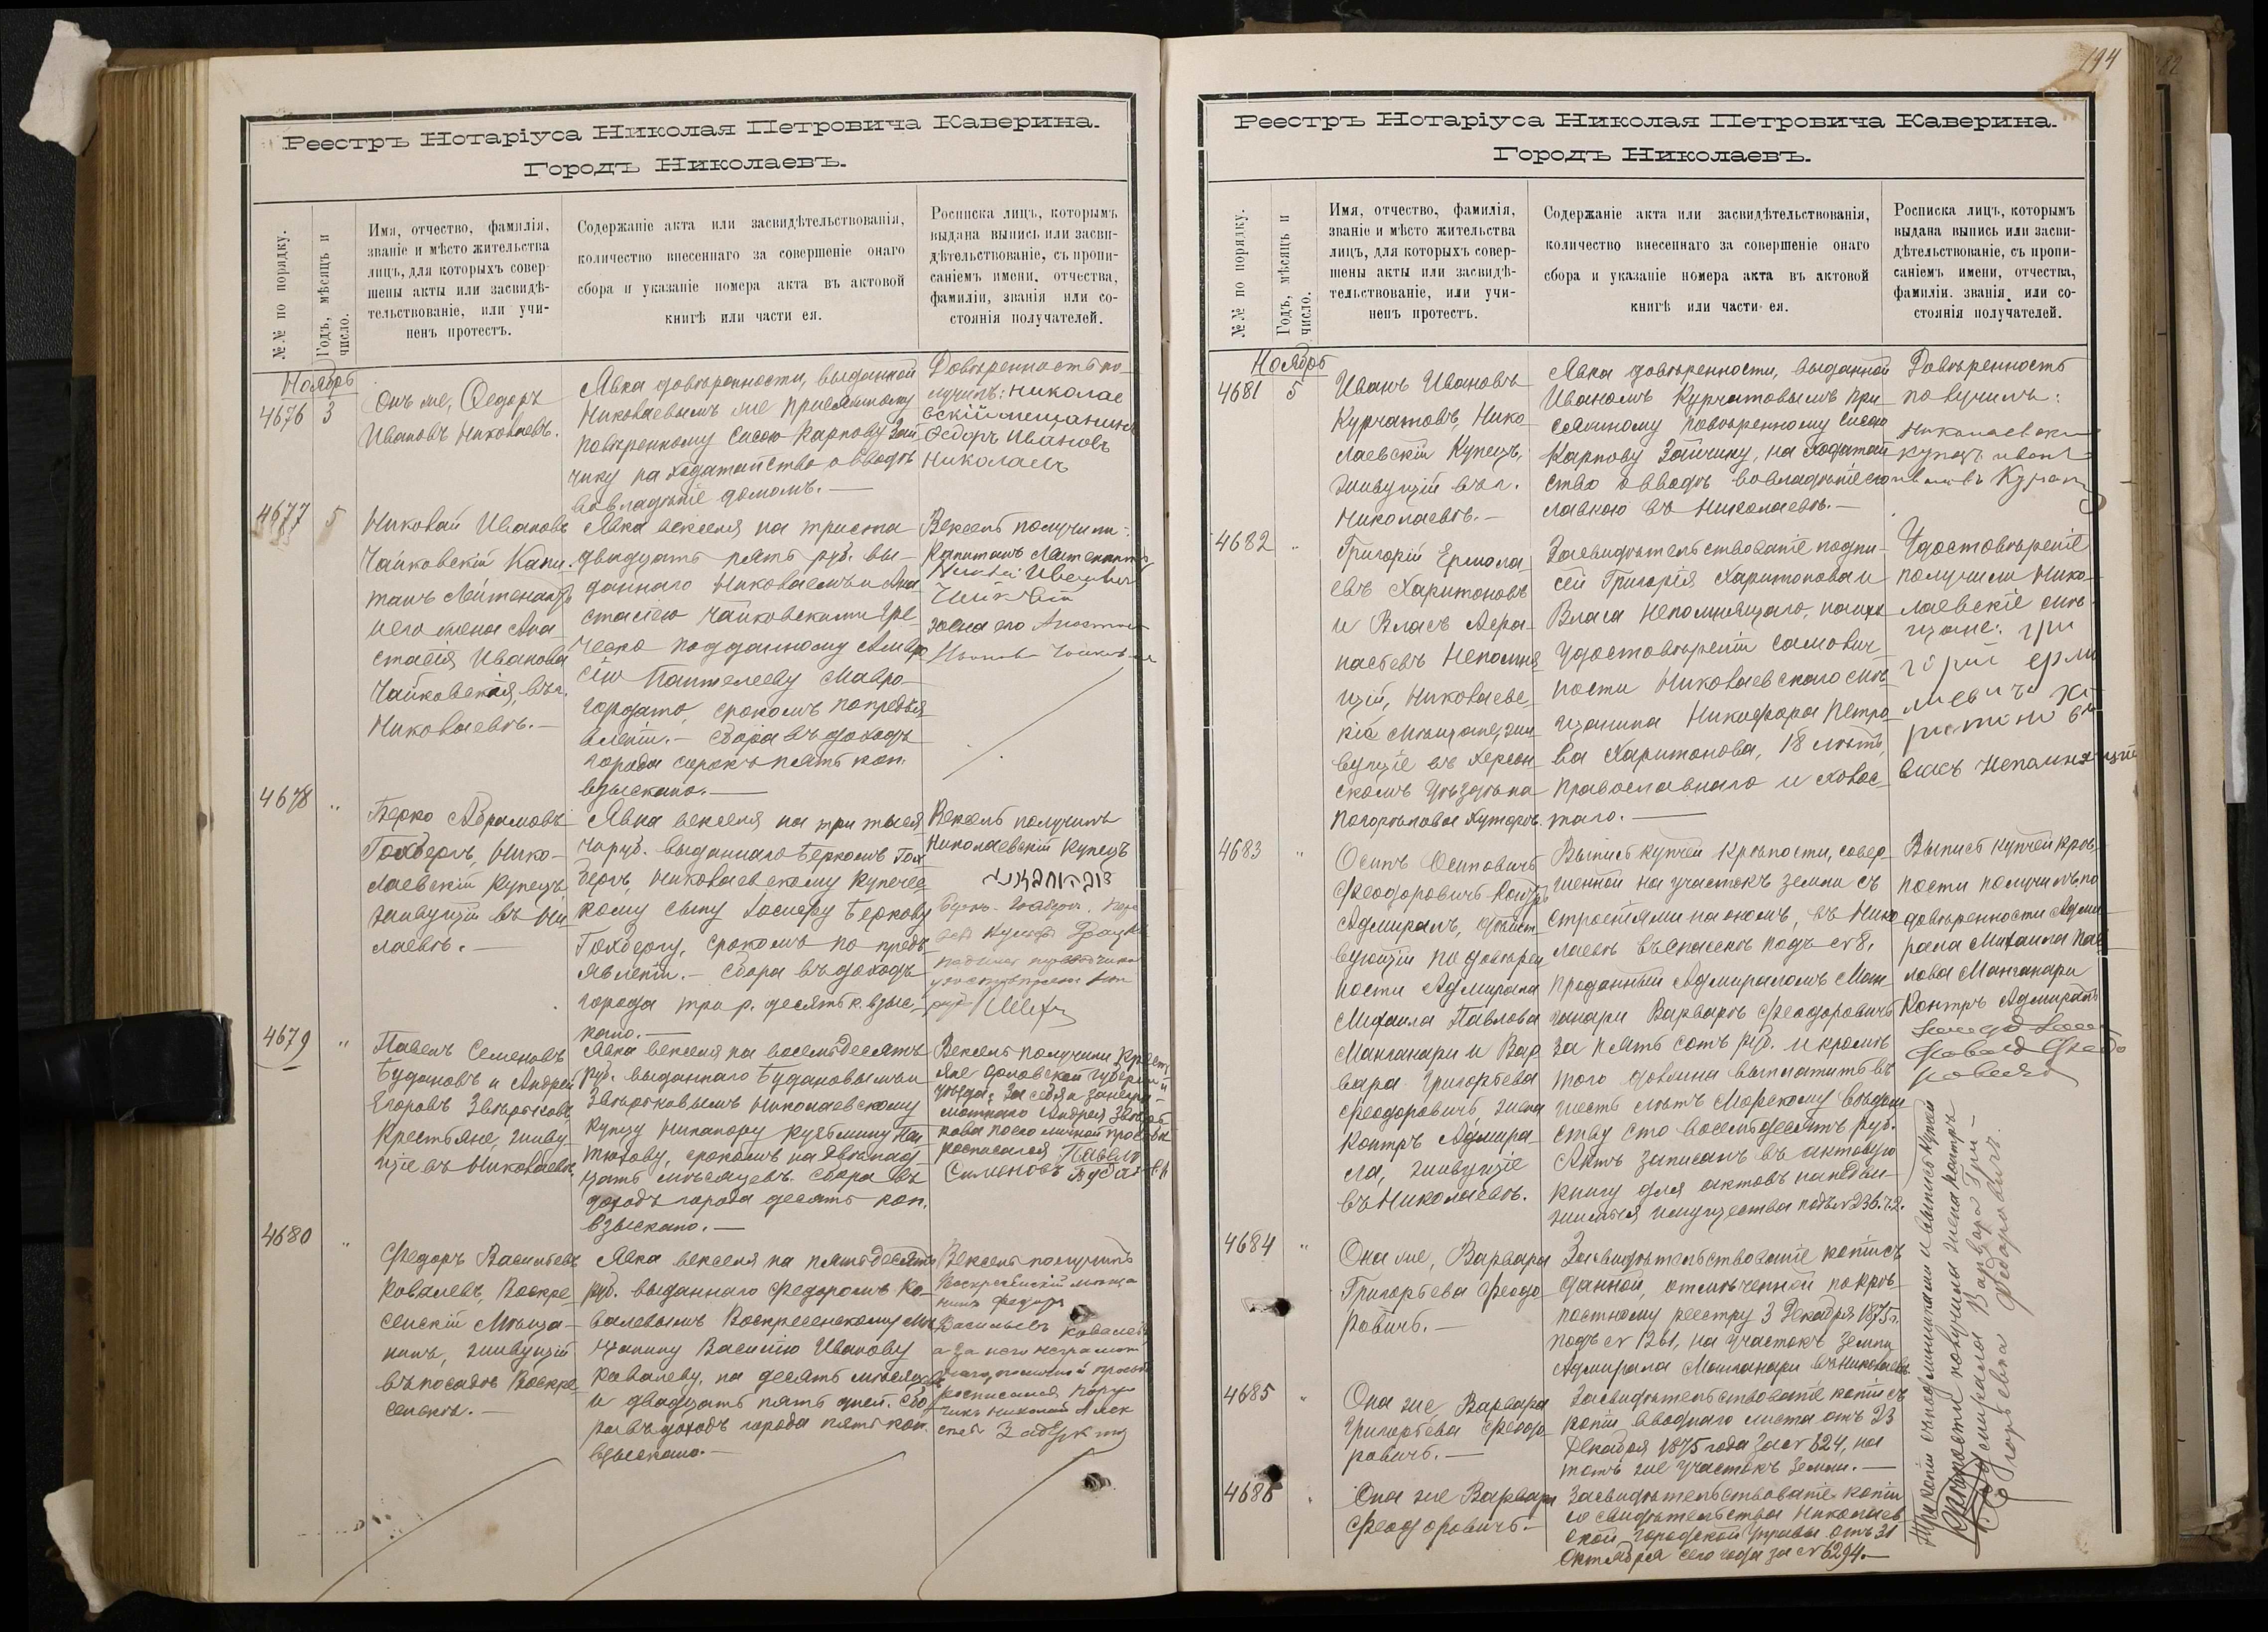 Реестръ Нотаріуса Николая Петровича Каверина.
Городъ Николаевъ.
№№ по порядку.
Годъ, мѣсяцъ и
число.
Имя, отчество, фамилія,
званіе и мѣсто жительства
лицъ, для которыхъ совер-
шены акты или засвидѣ-
тельствованіе, или учи-
ненъ протестъ.
Содержаніе акта или засвидѣтельствованія,
количество внесеннаго за совершеніе онаго
сбора и указаніе номера акта въ актовой
книгѣ или части ея.
Росписка лицъ, которымъ
выдана выпись или засви-
дѣтельствованіе, съ пропи-
саніемъ имени, отчества,
фамиліи, званія или со-
стоянія получателей.
Ноябрь
4676 3
Онъ же, Ѳедоръ
Ивановъ Николаевъ.
Явка довѣренности, выданной
Николаевымъ же присяжному
повѣренному Сисою Карпову Зай
чику на ходатайство о вводѣ
во владѣніе домомъ.—
Довѣренность по
лучилъ: Николае
вскій мещанинъ
Ѳедоръ Ивановъ
Николаевъ
4677 5
Николай Ивановъ
Чайковскій Капи-
танъ Лейтенантъ
и его жена Ана
стасія Иванова
Чайковская, въ г.
Николаевѣ.—
Явка векселя на триста
двадцать пять руб. вы-
даннаго Николаемъ и Ана
стасіею Чайковскими Гре-
ческо подданному Амвро
сію Пантелееву Мавро-
гордато, срокомъ по предъя
вленіи.— Сбора въ доходъ
города сорокъ пять коп.
взыскано.—
Вексель получили:
Капитанъ Лейтенантъ
жена его
4678 "
Берко Абрамовъ
Гохбергъ, Нико-
лаевскій Купецъ
живущій въ Ни
лаевѣ.—
Явка векселя на три тыся
чи руб. выданнаго Беркомъ Гох
бергъ, Николаевскому Купечес
кому сыну Іосифу Беркову
Гохбергу, срокомъ по предъ
явленіи.— Сбора въ доходъ
города три р. десять к. взыс-
кано.—
Вексель получилъ
Николаевскій Купецъ
4679 "
Павелъ Семеновъ
Будановъ и Андрей
Егоровъ Звѣрьковъ
Крестьяне, живу-
щіе въ Николаевѣ.
Явка векселя на восемьдесятъ
руб. выданнаго Будановымъ и
Звѣрьковымъ Николаевскому
купцу Никанору Кузьмину
срокомъ на двѣнад
цать мѣсяцевъ. Сбора въ
доходъ города десять коп.
взыскано.—
Вексель получили Крест
яне Орловской губерніи
уѣзда: За себя и за негра-
мотнаго Андрея Звѣрь
кова по его личной прозьбѣ
росписался Павелъ
Сименовъ Будановъ
4680 "
Федоръ Васильевъ
Ковалевъ, Воскре-
сенскій Мѣща-
нинъ, живущій
въ посадѣ Воскре
сенскѣ.—
Явка векселя на пятьдесятъ
руб. выданнаго Федоромъ Ко-
валевымъ Воскресенскому Мѣ
щанину Василію Иванову
Ковалеву, на десять мѣсяцевъ
и двадцать пять дней. Сбо
ра въ доходъ города пять коп.
взыскано.—
Вексель получилъ
Воскресенскій меща
нинъ Федоръ
Васильевъ Ковалевъ
а за него неграмот
наго, по личной прозьбѣ
росписался
Николай Алек
194
Реестръ Нотаріуса Николая Петровича Каверина.
Городъ Николаевъ.
№№ по порядку.
Годъ, мѣсяцъ и
число.
Имя, отчество, фамилія,
званіе и мѣсто жительства
лицъ, для которыхъ совер-
шены акты или засвидѣ-
тельствованіе, или учи-
ненъ протестъ.
Содержаніе акта или засвидѣтельствованія,
количество внесеннаго за совершеніе онаго
сбора и указаніе номера акта въ актовой
книгѣ или части ея.
Росписка лицъ, которымъ
выдана выпись или засви-
дѣтельствованіе, съ пропи-
саніемъ имени, отчества,
фамиліи. званія или со-
стоянія получателей.
Ноябрь
4681 5
Иванъ Ивановъ
Курчатовъ, Нико
лаевскій Купецъ,
живущій въ г.
Николаевѣ.—
Явка довѣренности, выданной
Иваномъ Курчатовымъ при-
сяжному повѣренному Сисою
Карпову Зайчику, на ходатай
ство о вводѣ во владѣніе
лавкою въ Николаевѣ.—
Довѣренность
получилъ:
Николаевски
купецъ иванъ
4682 "
Григорій Ермола-
евъ Харитоновъ
и Власъ Аѳра-
насьевъ Непомня
щій, Николаевс-
кіе Мѣщане, жи
вущіе въ Херсон
скомъ Уѣздѣ на
Погорѣловом Хуторѣ.
Засвидѣтельствованіе подпи-
сей Григорія Харитонова и
Власа Непомнящаго, на ихъ
удостовѣреніи самолич-
ности Николаевскаго мѣ
щанина Никифора Петро
ва Харитонова, 18 лѣтъ,
православнаго и холос-
таго.—
Удостовѣреніе
получили Нико-
лаевскіе мѣ-
щане: гри
горій ермо
власъ Непомнящій
4683 "
Осипъ Осиповичъ
Феодоровичъ Контръ
Адмиралъ, дѣйст
вующій по довѣрен
ности Адмирала
Михаила Павлова
Манганари и Вар
вара Григорьева
Феодоровичъ, жена
Контръ Адмира-
ла, живущіе
въ Николаевѣ.
Выпись купчей крѣпости, совер-
шенной на участокъ земли съ
строеніями на ономъ, въ Нико
лаевѣ въ Спасскѣ подъ № 8,
проданный Адмираломъ Ман
ганари Варварѣ Феодоровичъ
за пять сотъ руб. и кромѣ
того должна выплатить въ
шесть лѣтъ Морскому вѣдом
ству сто восемьдесятъ руб.
Актъ записанъ въ актовую
книгу для актовъ на недви-
жимыя имущества подъ № 236. ч. 2.
Выпись купчей крѣ-
пости получилъ, по
довѣренности Адми-
рала Михаила Пав
лова Манганари
Контръ Адмиралъ
4684 "
Она же, Варвара
Григорьева Феодо
ровичъ.—
Засвидѣтельствованіе копіи съ
данной, отмѣченной по крѣ-
постному реестру 3 Декабря 1875 г.
подъ № 1261, на участокъ земли
Адмирала Манганари въ Николаевѣ.
4685 "
Она же Варвара
Григорьева Феодо
ровичъ.—
Засвидѣтельствованіе копіи съ
копіи вводнаго листа отъ 23
Декабря 1875 года за № 624, на
тотъ же участокъ земли.—
4686 "
Она же Варвара
Феодоровичъ.—
Засвидѣтельствованіе копіи
со свидѣтельства Николаев
ской городской управы отъ 31
Октября сего года за № 6294.—
Три копіи съ подлинниками и выпись купчей
крѣпости получила жена контръ
адмирала Варвара Гри-
горьевна Федоровичъ.